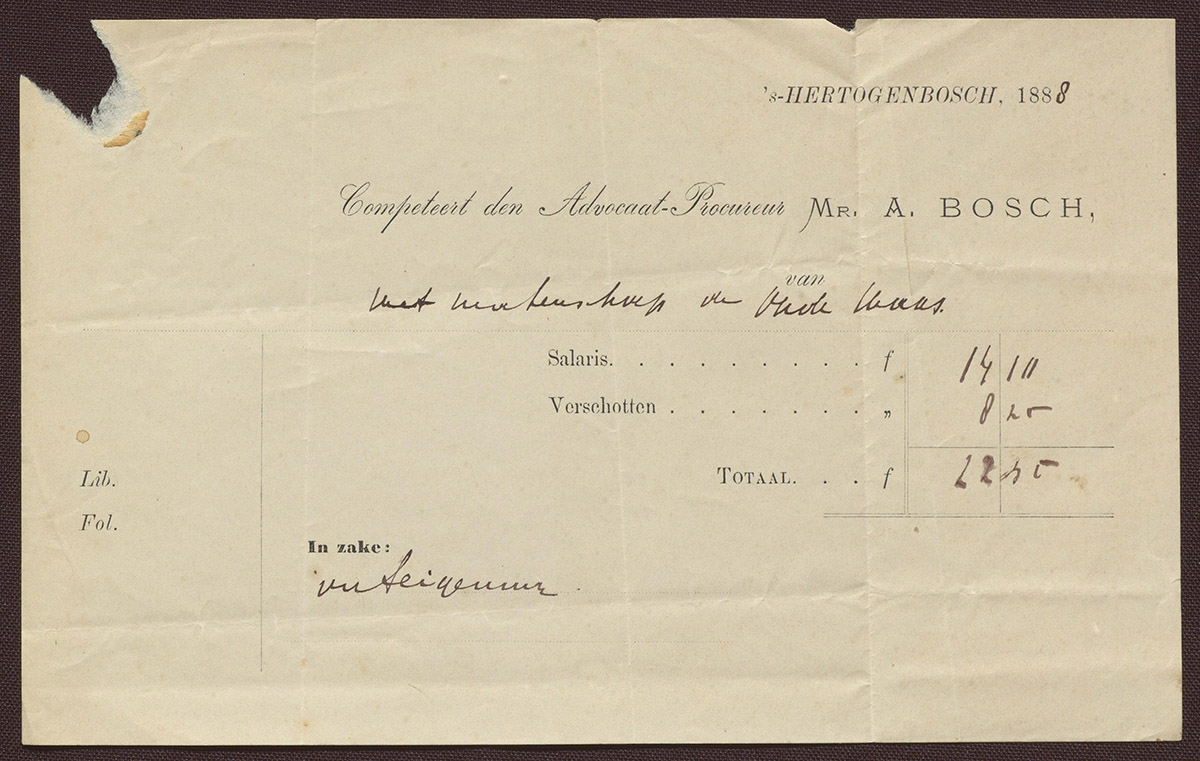 's-HERTOGENBOSCH, 1888
Competeert den Advocaat-Procureur Mr. A. BOSCH,
van
het waterschap de Oude Maas.
Salaris. . . . . . . . . f 14 10
Verschotten . . . . . . . „ 8 25
Totaal. . . f 22 35
Lib.
Fol.
In zake:
onteigening.